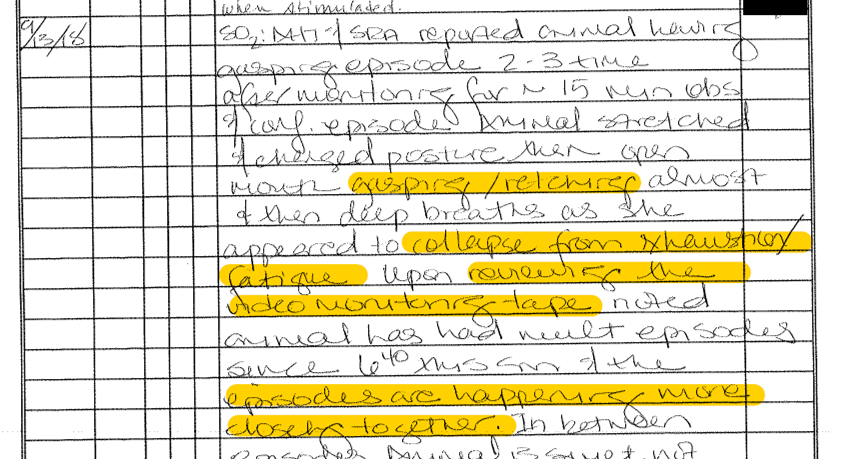 when stimulated.
9/13/18 SO₂: MHT/ SRA reported animal having
gasping episode 2-3 time
after monitoring for ~ 15 min obs
& conf. episode Animal stretched
& changed posture then open
mouth gasping/retching almost
& then deep breaths as she
appeared to collapse from exhaustion/
fatigue Upon reviewing the
video monitoring tape noted
animal has had mult episodes
since 6⁴⁰ this &  the
episodes are happening more
closely together. In between
episodes Animal is not